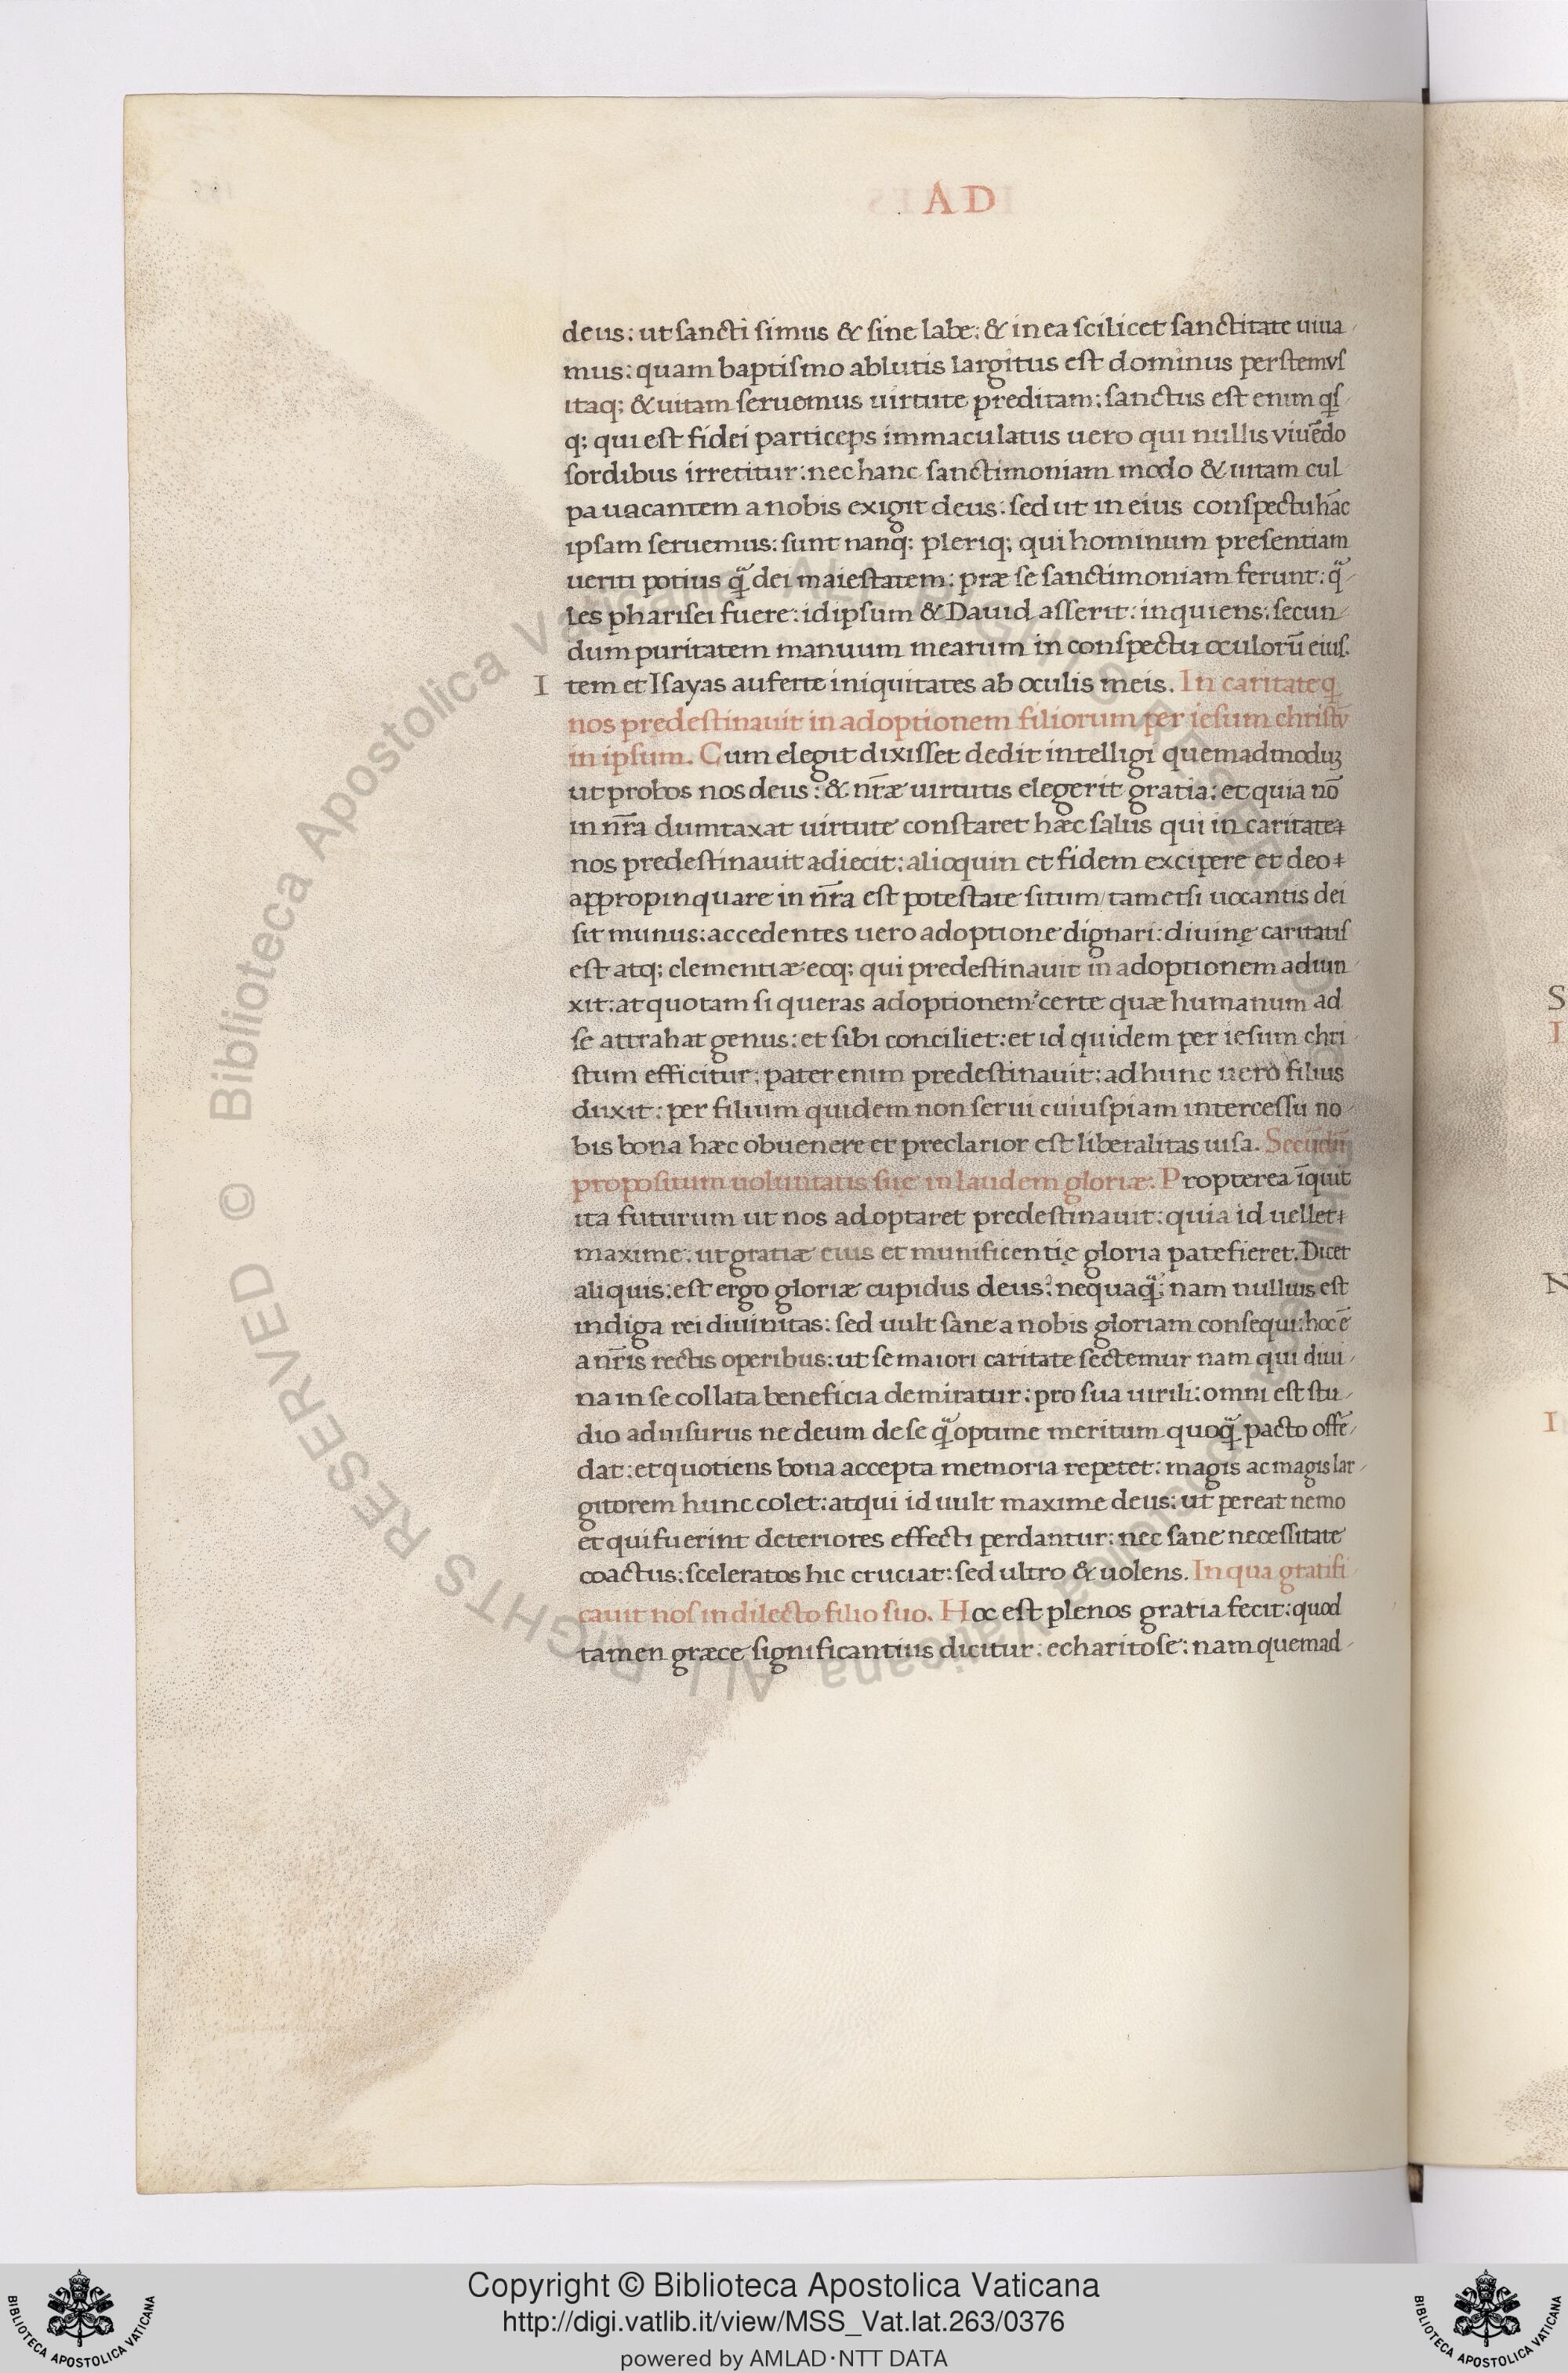 AD
deus: ut sancti simus & sine labe: & in ea scilicet sanctitate uiua
mus: quam baptismo ablutis largitus est dominus perstemus
itaq; & uitam seruemus uirtute preditam: sanctus est enim qͥs
q; qui est fidei particeps immaculatus uero qui nullis viuẽdo
sordibus irretitur: nec hanc sanctimoniam modo & uitam cul
pa uacantem a nobis exigit deus: sed ut in eius conspectu hãc
ipsam seruemus: sunt nanq; pleriq; qui hominum presentiam
ueriti potius q̃ dei maiestatem: præ se sanctimoniam ferunt: q̃
les pharisei fuere: id ipsum & Dauid asserit: inquiens: secun
dum puritatem manuum mearum in conspectu oculorũ eius.
I tem et Isayas auferte iniquitates ab oculis meis. In caritate q
nos predestinauit in adoptionem filiorum per iesum christũ
in ipsum. Cum elegit dixisset dedit intelligi quemadmoduʒ
ut probos nos deus: & nr̃æ uirtutis elegerit gratia: et quia nõ
in nr̃a dumtaxat uirtute constaret hæc salus qui in caritate
nos predestinauit adiecit: alioquin et fidem excipere et deo
appropinquare in nr̃a est potestate situm/ tametsi uocantis dei
sit munus: accedentes uero adoptione dignari: diuinę caritatis
est atq; clementiæ: eoq; qui predestinauit in adoptionem adiun
xit: at quotam si queras adoptionem? certe quæ humanum ad
se attrahat genus: et sibi conciliet: et id quidem per iesum chri
stum efficitur: pater enim predestinauit: ad hunc uero filius
duxit: per filium quidem non serui cuiuspiam intercessu no
bis bona hæc obuenere et preclarior est liberalitas uisa. Secũdũ
propositum uoluntatis suę in laudem gloriæ. Propterea ĩquit
ita futurum ut nos adoptaret predestinauit: quia id uellet
maxime: ut gratiæ eius et munificentię gloria patefieret. Dicet
aliquis: est ergo gloriæ cupidus deus? nequaq̃; nam nullius est
indiga rei diuinitas: sed uult sane a nobis gloriam consequi: hoc ẽ
a nr̃is rectis operibus: ut se maiori caritate sectemur nam qui diui
na in se collata beneficia demiratur: pro sua uirili: omni est stu
dio adnisurus ne deum de se q̃ optime meritum quoq̃ pacto offẽ
dat: et quotiens bona accepta memoria repetet: magis ac magis lar
gitorem hunc colet: atqui id uult maxime deus: ut pereat nemo
et qui fuerint deteriores effecti perdantur: nec sane necessitate
coactus: sceleratos hic cruciat: sed ultro & uolens. In qua gratifi
cauit nos in dilecto filio suo. Hoc est plenos gratia fecit: quod
tamen græce significantius dicitur: echaritose: nam quemad
S
I
N
I
© Biblioteca Apostolica Vaticana ALL RIGHTS RESERVED
Copyright © Biblioteca Apostolica Vaticana
http://digi.vatlib.it/view/MSS_Vat.lat.263/0376
powered by AMLAD·NTT DATA
BIBLIOTECA APOSTOLICA VATICANA
BIBLIOTECA APOSTOLICA VATICANA